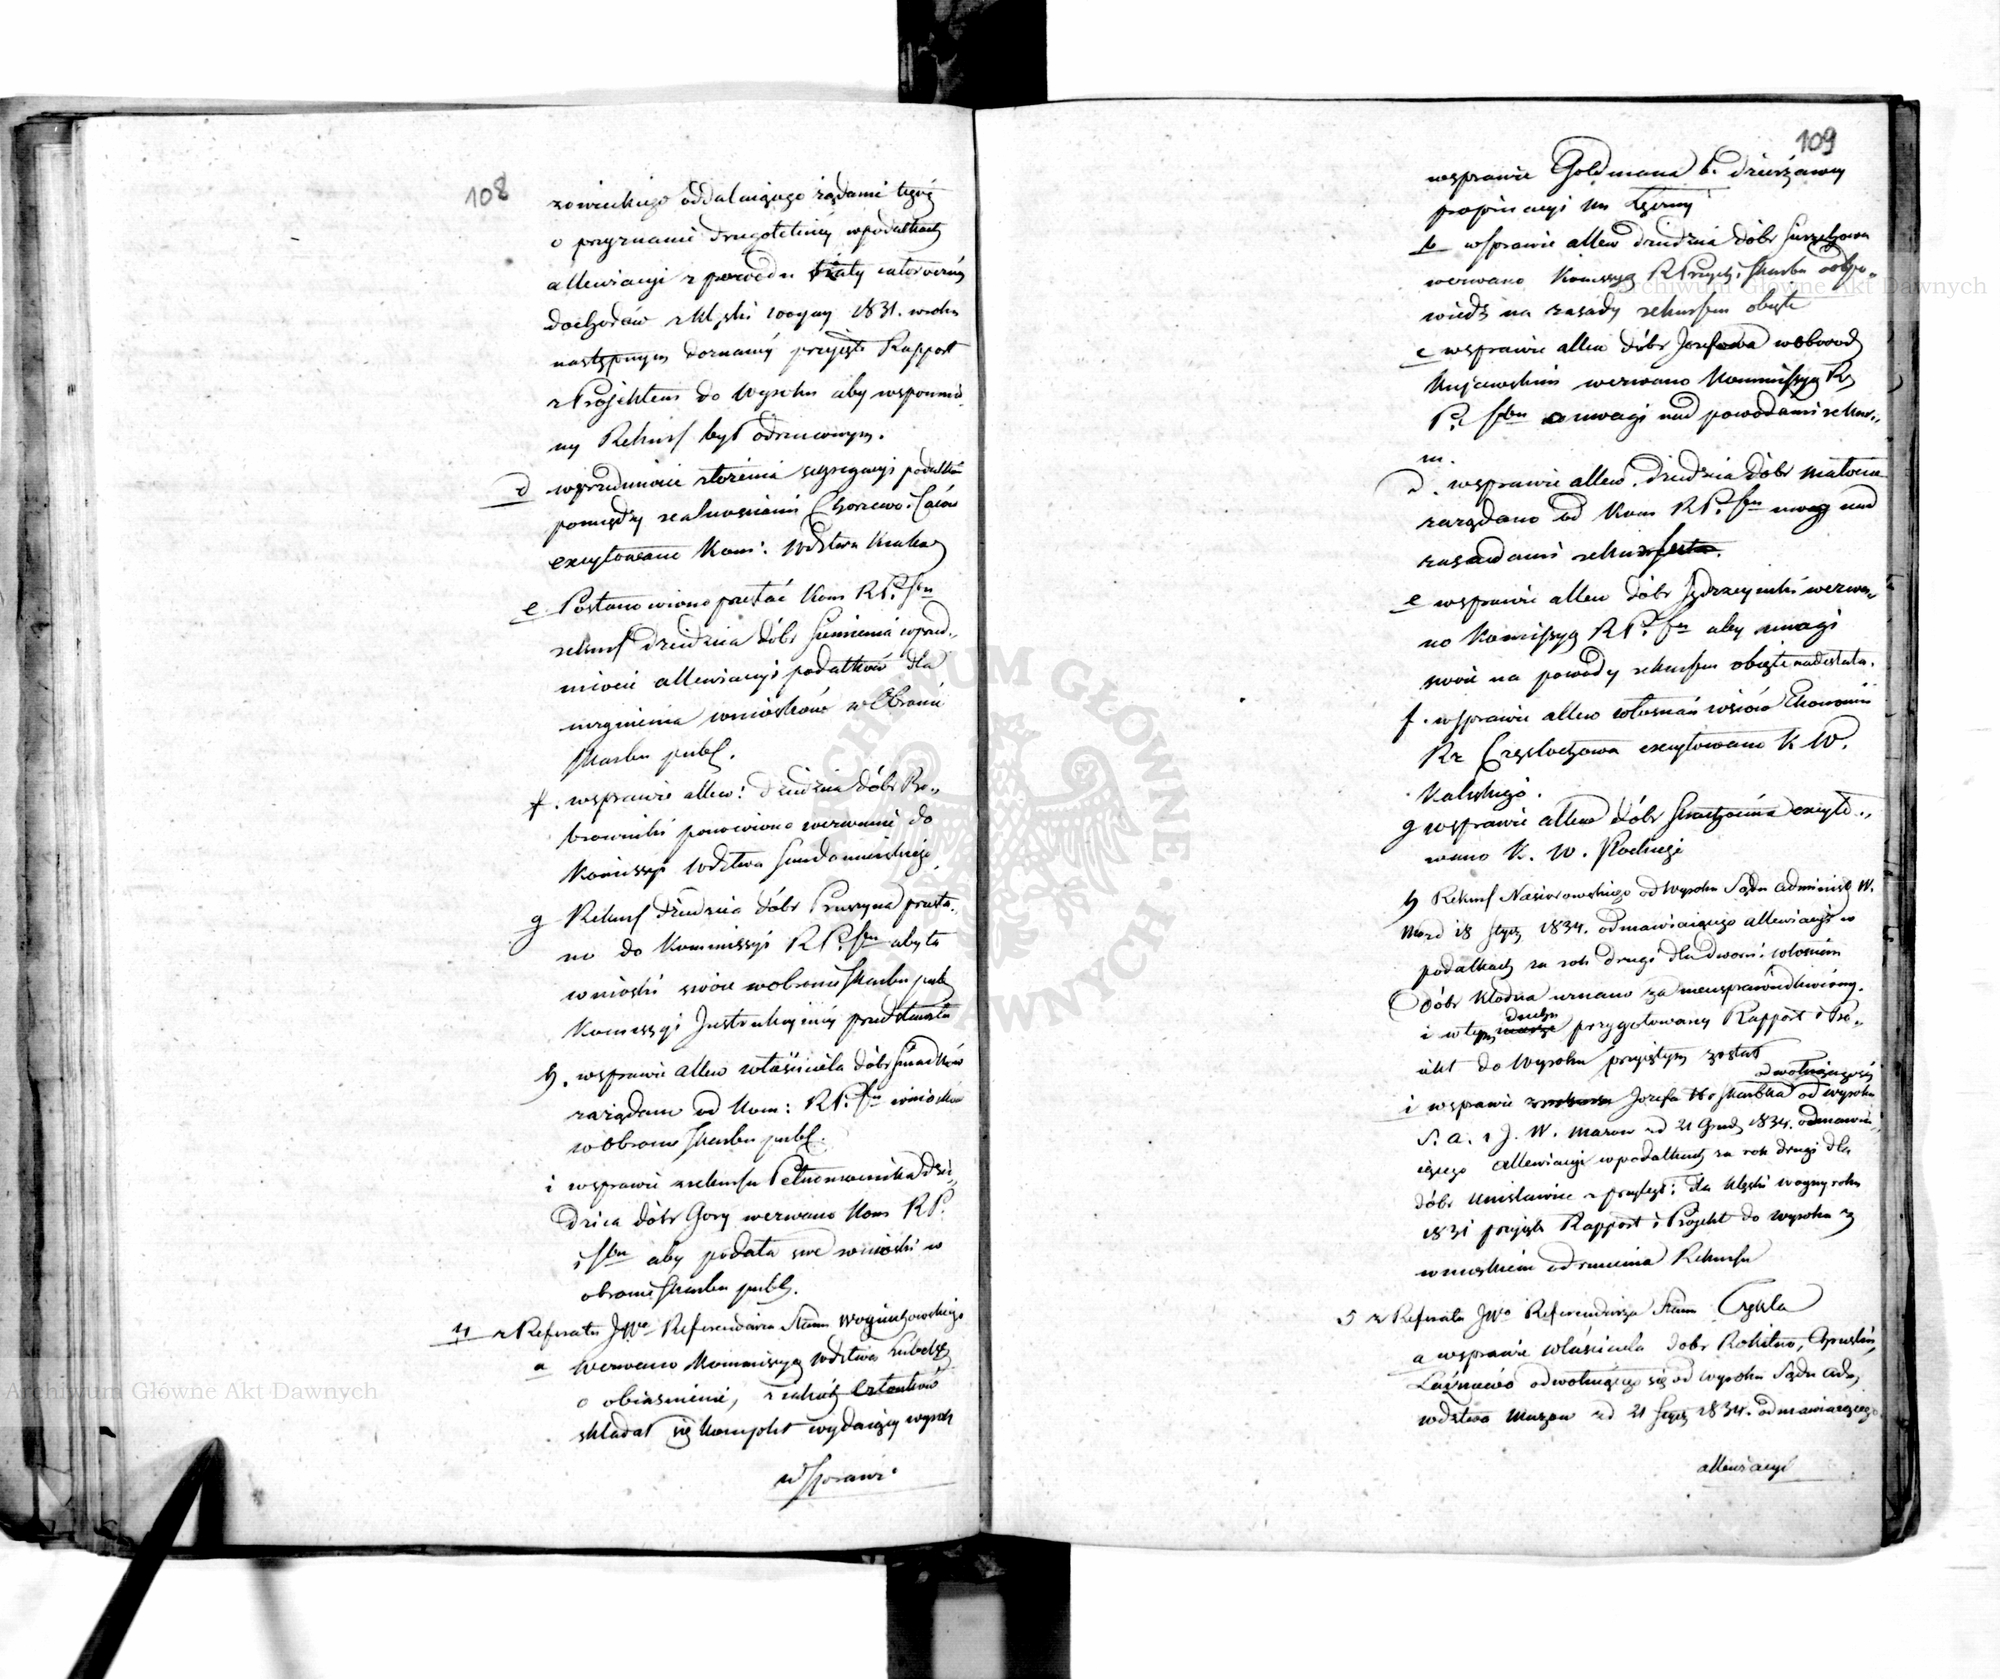 108
zowieckiego oddalaiącego żądanie tegoż
o przyznanie drugoletniéy w podatkach
allewiacyi z powodu straty
dochodów z klęski woyny 1831. w roku
następnym doznanéy przyięto Rapport
z Projektem do Wyroku aby wspomnio„
ny Rekurs był odrzuconym.
d w przedmiocie złożenia segregacyi podatków
pomiędzy realnościami
excytowano Kom: Wdztwa Krakow
e Postanowiono przesłać Kom R P. Skn
rekurs dziedzica dóbr Siemienia w przed„
miocie allewiacyi podatków dla
uczynienia wniosków w Obronie
Skarbu publ.
f. w sprawie allew: dziedzica dóbr Bo„
browniki ponowiono wezwanie do
Komissyi Wdztwa Sandomierskiego
g Rekurs dziedzica dóbr Pruszyna przesła„
no do Kommissyi R P. Skn aby ta
wnioski swoie w obronie Skarbu publ
Komissyi Instrukcyinéy przedstawiła
h. w sprawie allew właściciela dóbr
zażądano od Kom: R P. Skn wniosków
w Obronie Skarbu publ.
i w sprawie rekursu Pełnomocnika dzie„
dzica dóbr Gory wezwano Kom R P.
i Skn aby podała swe wnioski w
obronie Skarbu publ.
4 z Referatu JWo Referendarza Stanu Woyciechowskiego
a wezwano Kommissyą Wdztwa Lubelsk
o obiaśnienie, z iakich Członków
składał się komplet wydaiący wyrok
w Sprawie
109
w sprawie Goldmana b. dzierżawcy
propinacyi
b w sprawie allew dziedzica dóbr
wezwano Komissyą R Przych i Skarbu o odpo„
wiedź na zasady rekursem obięte
c w sprawie allew dóbr Jozefowa w obwod
Kujawskim wezwano Kommissyą R
P. Skn o uwagi nad powodami rekur„
su.
d. w sprawie allew. dziedzica dóbr Małocice
zażądano od Kom R P. Skn uwag nad
zasadami rekursu.
e w sprawie allew dóbr wezwa„
no Komissyą R P. Skn aby uwagi
swoie na powody rekursem obięte nadesłała.
f. w sprawie allew włościan wsiów Ekonomii
Rz Częstochowa excytowano K W.
Kaliskiego.
g w sprawie allew dóbr excyto„
wano K. W. Płockiego
h Rekurs Nasiorowskiego od Wyroku Sądu administ W.
Maz d 18 Stycz 1834. odmawiaiącego allewiacyi w
podatkach za rok drugi dla dworu i włościan
dóbr Kłodna uznano za nieusprawiedliwiony.
i w tym duchu przygotowany Rapport i Pro„
iekt do Wyroku przyiętym został
i w sprawie Jozefa Hr Skarbka odwołuiącego się od wyroku
S. A. i J. W. Mazow z d 21 Grud 1834. odmawia„
iącego allewiacyi w podatkach za rok drugi dla
dóbr Unisławice z przyległ: dla klęski woyny roku
1831 przyięto Rapport i Projekt do wyroku z
wnioskiem odrzucenia Rekursu
5 z Referatu JWo Referendarza Stanu
a w sprawie właściciela dóbr Rokitno,
odwołuiącego się od wyroku Sądu Adm,
wdztwa Mazow z d 21 Stycz 1834. odmawiaiącego
allewiacyi
Archiwum Główne Akt Dawnych
Archiwum Główne Akt Dawnych
ARCHIWUM GŁÓWNE AKT DAWNYCH